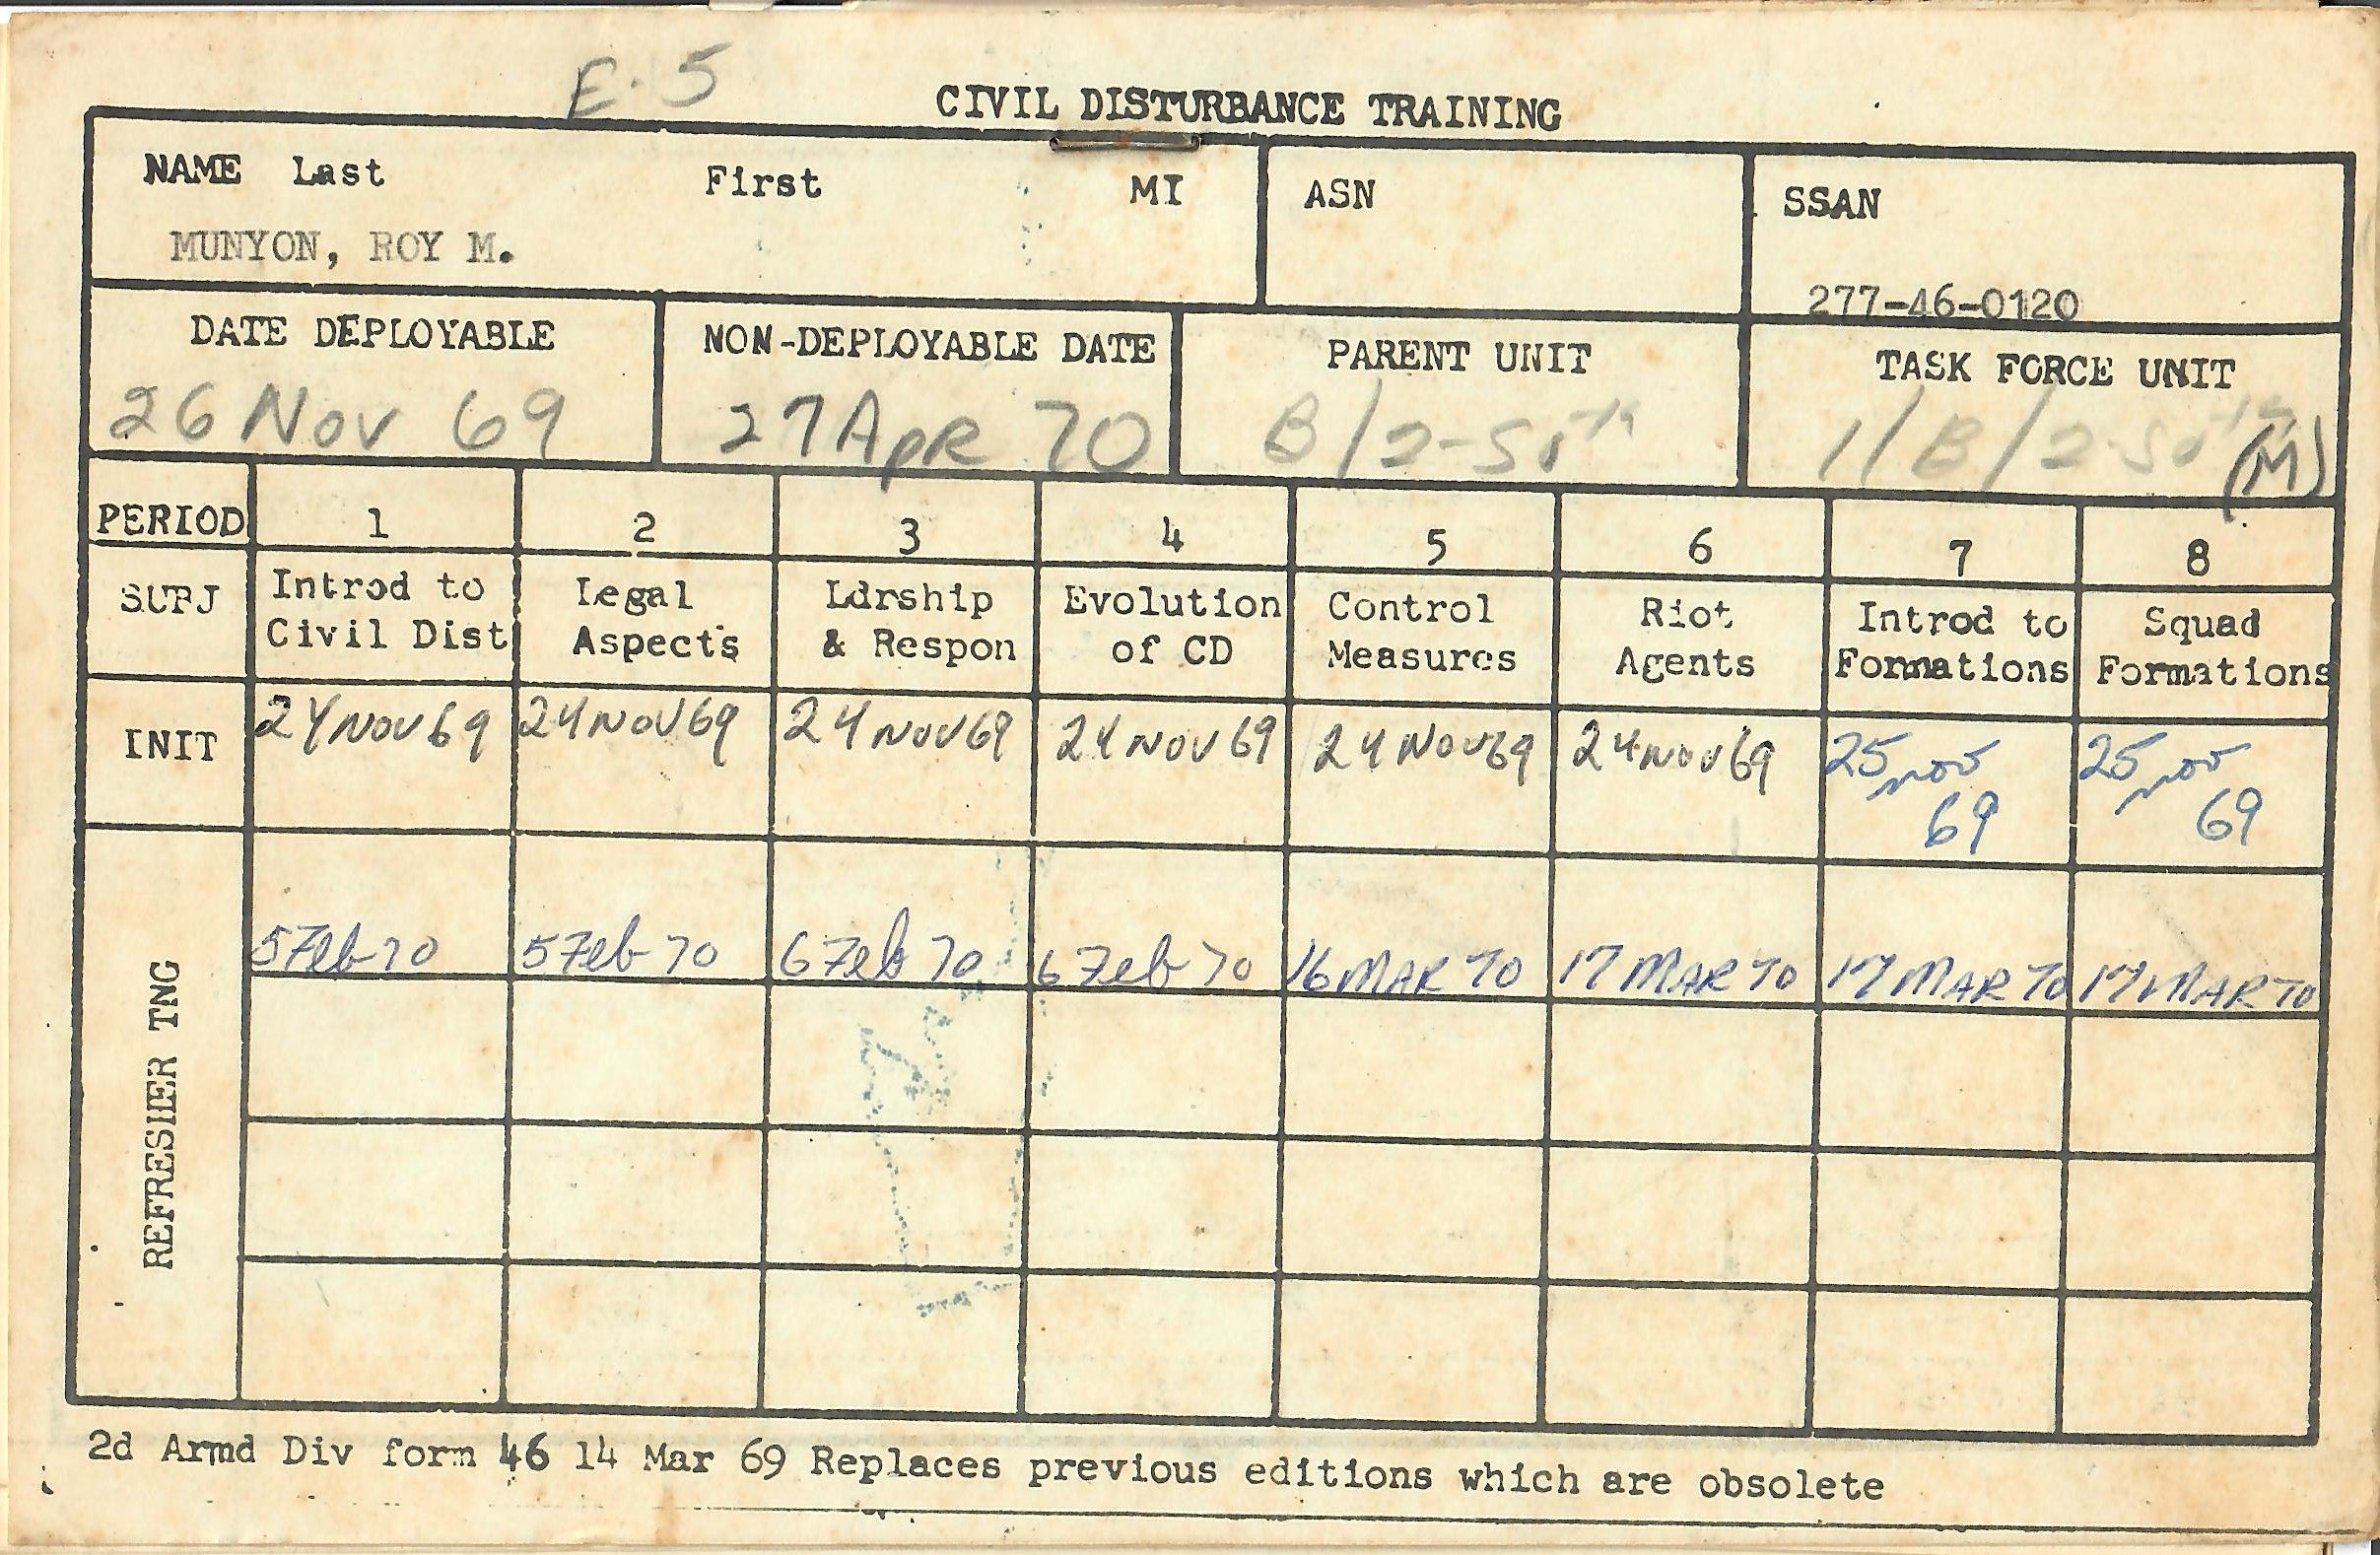 E-5
CIVIL DISTURBANCE TRAINING
NAME Last First MI ASN SSAN
MUNYON, ROY M.
277-46-0120
DATE DEPLOYABLE NON-DEPLOYABLE DATE PARENT UNIT TASK FORCE UNIT
26 Nov 69 27 ApR 70 B/2-50th 1/B/2-50th (M)
PERIOD 1 2 3 4 5 6 7 8
SUBJ Introd to Legal Ldrship Evolution Control Riot Introd to Squad
Civil Dist Aspects & Respon of CD Measures Agents Formations Formations
INIT 24 NOV 69 24 NOV 69 24 NOV 69 24 NOV 69 24 NOV 69 24 NOV 69 25 nov 69 25 nov 69
REFRESHER TNG
5 Feb 70 5 Feb 70 6 Feb 70 6 Feb 70 16 MAR 70 17 MAR 70 17 MAR 70 17 MAR 70
2d Armd Div form 46 14 Mar 69 Replaces previous editions which are obsolete